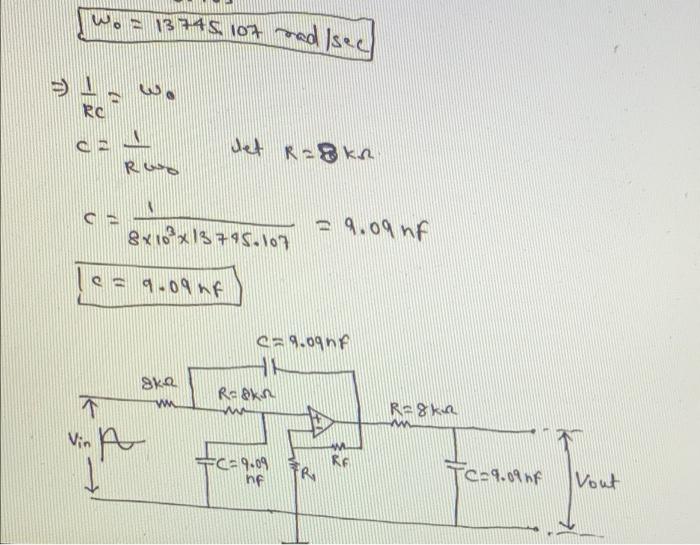 W₀ = 13745.107 rad/sec
⇒ 1/RC = W₀
C = 1/RW₀ Let R = 8 kΩ
C = 1/8×10³×13745.107 = 9.09 nf
C = 9.09 nf
C = 9.09nf
8kΩ
R = 8kΩ
R = 8kΩ
Vin
C = 9.09
nf
R₁
Rf
C = 9.09nf
Vout